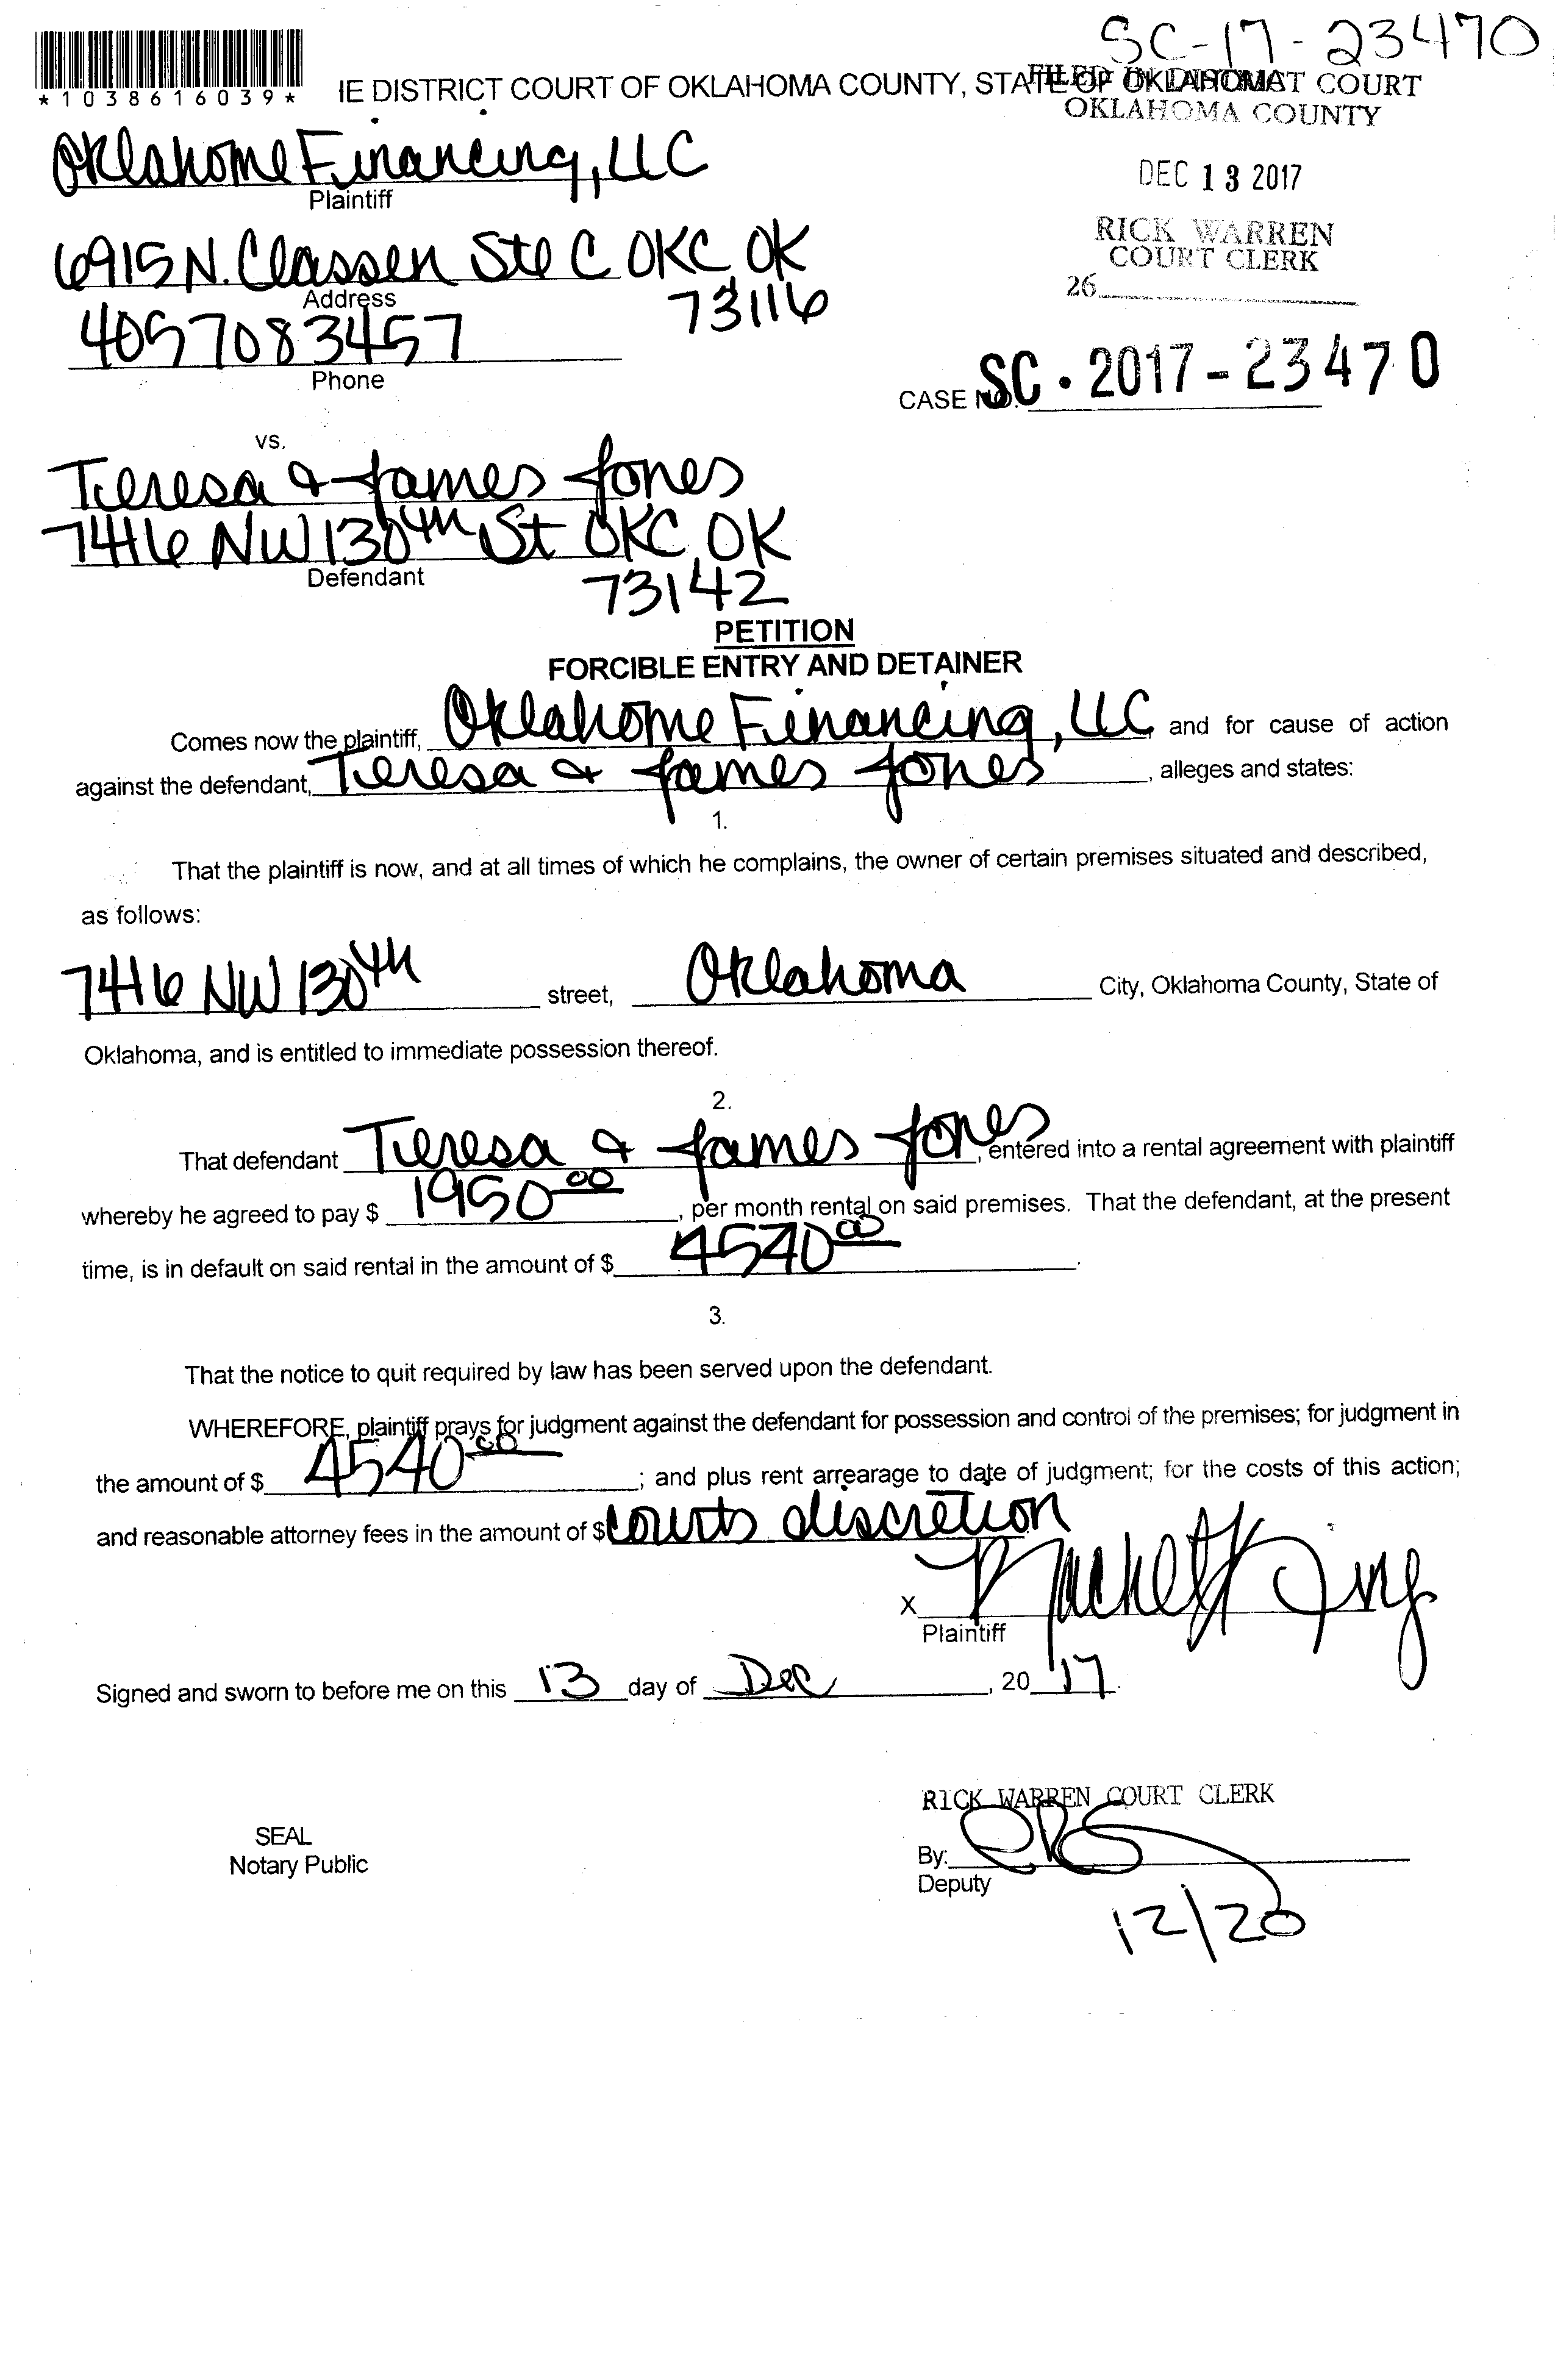 SC-17-23470
*1038616039*
IE DISTRICT COURT OF OKLAHOMA COUNTY, STATE OF OKLAHOMA
FILED IN DISTRICT COURT
OKLAHOMA COUNTY
Oklahome Financing, LLC
Plaintiff
DEC 13 2017
6915 N. Classen Ste C OKC OK
73116
Address
RICK WARREN
COURT CLERK
26
4057083457
Phone
CASE NO. SC-2017-23470
vs.
Teresa & James Jones
7416 NW 130th St OKC OK
73142
Defendant
PETITION
FORCIBLE ENTRY AND DETAINER
Comes now the plaintiff, Oklahome Financing, LLC and for cause of action
against the defendant, Teresa & James Jones, alleges and states:
1.
That the plaintiff is now, and at all times of which he complains, the owner of certain premises situated and described,
as follows:
7416 NW 130th street, Oklahoma City, Oklahoma County, State of
Oklahoma, and is entitled to immediate possession thereof.
2.
That defendant Teresa & James Jones, entered into a rental agreement with plaintiff
whereby he agreed to pay $ 1950 00, per month rental on said premises. That the defendant, at the present
time, is in default on said rental in the amount of $ 4540 00.
3.
That the notice to quit required by law has been served upon the defendant.
WHEREFORE, plaintiff prays for judgment against the defendant for possession and control of the premises; for judgment in
the amount of $ 4540 00; and plus rent arrearage to date of judgment; for the costs of this action;
and reasonable attorney fees in the amount of $ courts discretion
X
Plaintiff
Signed and sworn to before me on this 13 day of Dec, 20 17.
RICK WARREN COURT CLERK
SEAL
Notary Public
By:
Deputy
12/20